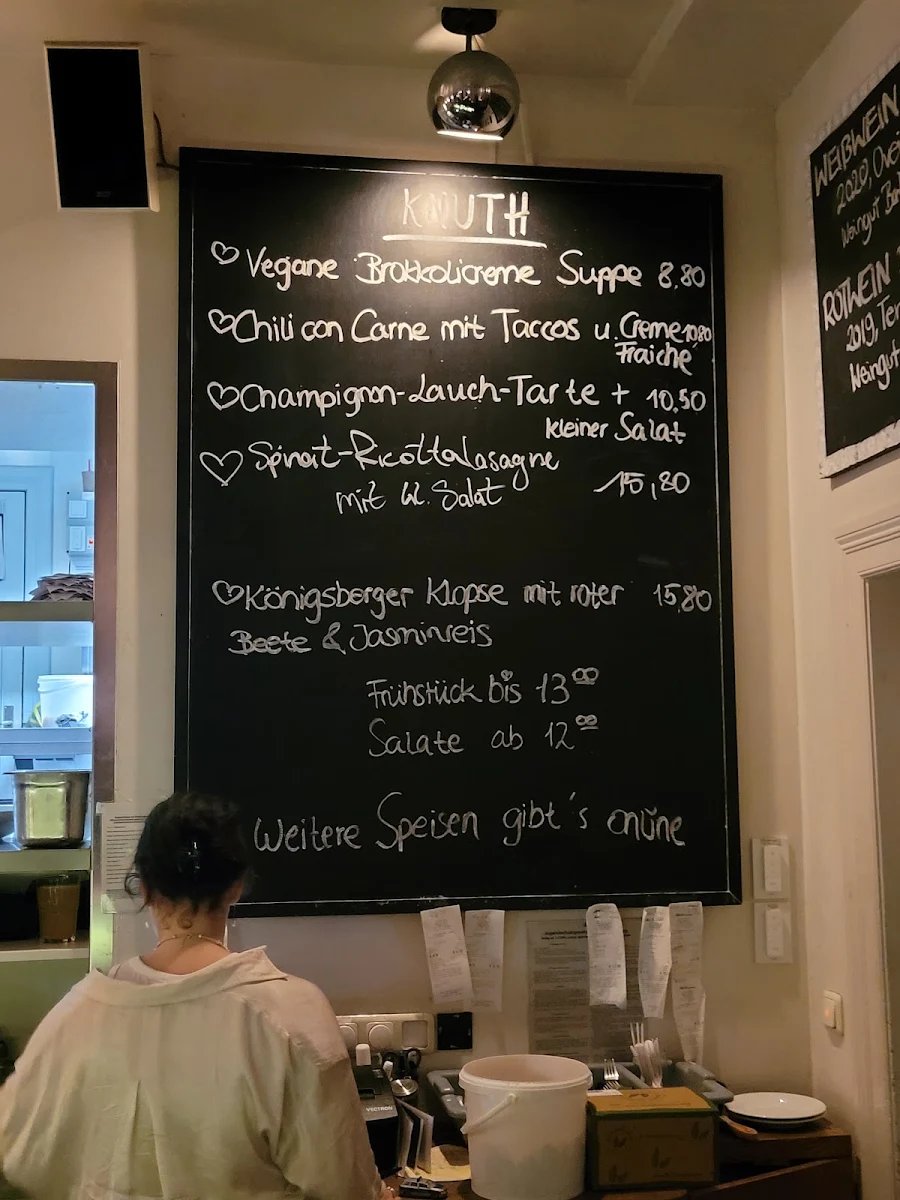 KNUTH
♡ Vegane Brokkolicreme Suppe 8,80
♡ Chili con Carne mit Taccos u. Creme 10,80
Fraiche
♡ Champignon-Lauch-Tarte + 10,50
kleiner Salat
♡ Spinat-Ricottalasagne
mit kl. Salat 15,80
♡ Königsberger Klopse mit roter 15,80
Beete & Jasminreis
Frühstück bis 13 00
Salate ab 12 00
Weitere Speisen gibt´s online
WEIßWEIN
2020,
Weingut
ROTWEIN
2019,
Weingut
VECTRON